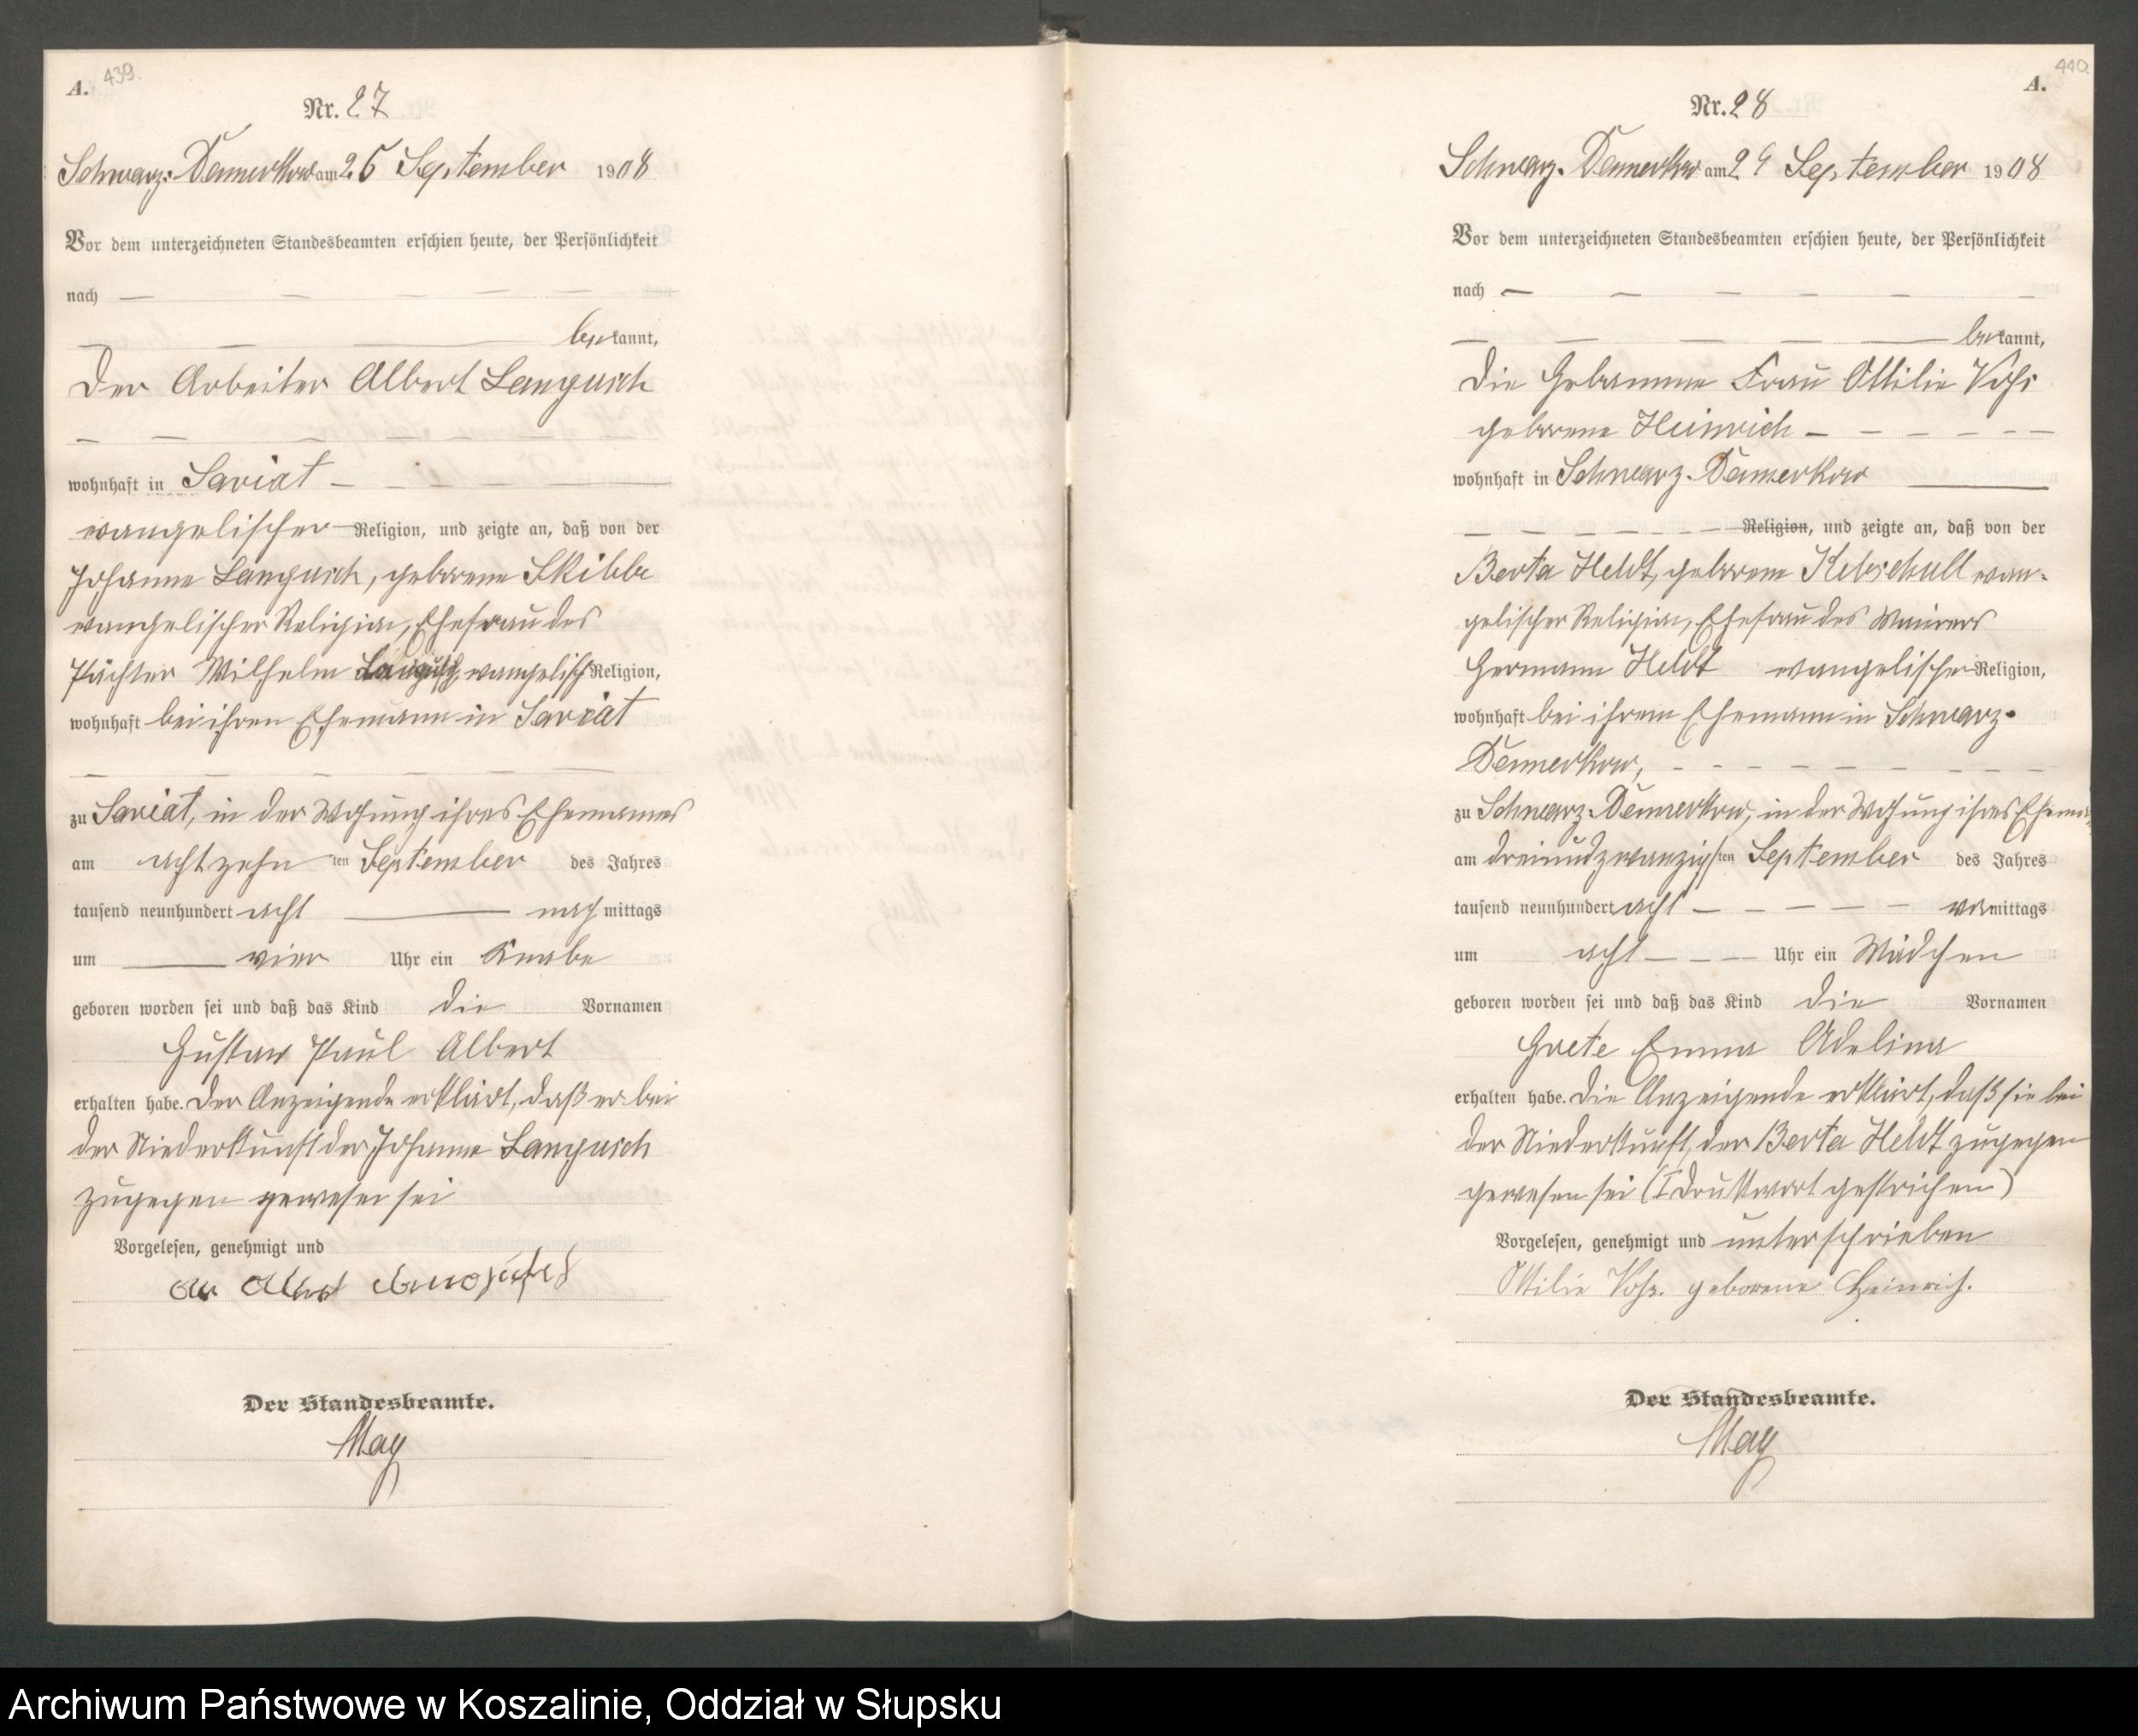 439.
A.
Nr. 27
Schwarz-Damerkow am 25 September 1908
Vor dem unterzeichneten Standesbeamten erschien heute, der Persönlichkeit
nach — — — — —
— — — bekannt,
der Arbeiter Albert Langusch
— — — — — — —
wohnhaft in Saviat — — — —
evangelischer Religion, und zeigte an, daß von der
Johanne Langusch, geborene Skibbe
evangelischer Religion, Ehefrau des
Pächter Wilhelm Langusch evangelisch Religion,
wohnhaft bei ihren Ehemann in Saviat
— — — — — — —
zu Saviat, in der Wohnung ihres Ehemannes
am achtzehn ten September des Jahres
tausend neunhundert acht — nach mittags
um — vier Uhr ein Knabe
geboren worden sei und daß das Kind die Vornamen
Gustav Paul Albert
erhalten habe. Der Anzeigende erklärt, daß er bei
der Niederkunft der Johanne Langusch
zugegen gewesen sei
Vorgelesen, genehmigt und
Albert
Der Standesbeamte.
May
440.
A.
Nr. 28
Schwarz-Damerkow am 24 September 1908
Vor dem unterzeichneten Standesbeamten erschien heute, der Persönlichkeit
nach — — — — — —
— — — — — bekannt,
die Hebamme Frau Ottilie Voss
geborene Heinrich — — — — — —
wohnhaft in Schwarz-Damerkow —
— — — — — — Religion, und zeigte an, daß von der
Berta Heldt, geborene Kebschull evan-
gelischer Religion, Ehefrau des Maurers
Hermann Heldt evangelischer Religion,
wohnhaft bei ihrem Ehemann in Schwarz-
Damerkow, — — — — — — — —
zu Schwarz-Damerkow, in der Wohnung ihres
am dreiundzwanzigsten September des Jahres
tausend neunhundert acht — — — — — vormittags
um acht — — — Uhr ein Mädchen
geboren worden sei und daß das Kind die Vornamen
Grete Emma Adeline
erhalten habe. Die Anzeigende erklärt, daß sie bei
der Niederkunft, der Berta Heldt zugegen
gewesen sei (1 Druckwort gestrichen)
Vorgelesen, genehmigt und unterschrieben
Ottilie Voss. geborene Heinrich.
Der Standesbeamte.
May
Archiwum Państwowe w Koszalinie, Oddział w Słupsku